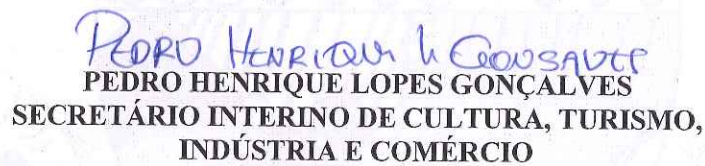 PEDRO HENRIQUE L GONSALVES
PEDRO HENRIQUE LOPES GONÇALVES
SECRETÁRIO INTERINO DE CULTURA, TURISMO,
INDÚSTRIA E COMÉRCIO